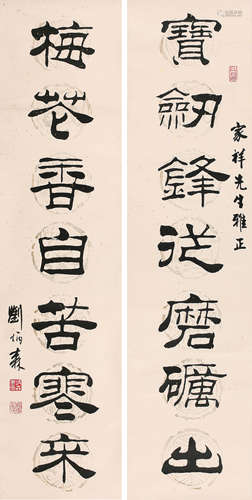 寶劒鋒從磨礪出
家祥先生雅正
梅花香自苦寒來
劉炳森